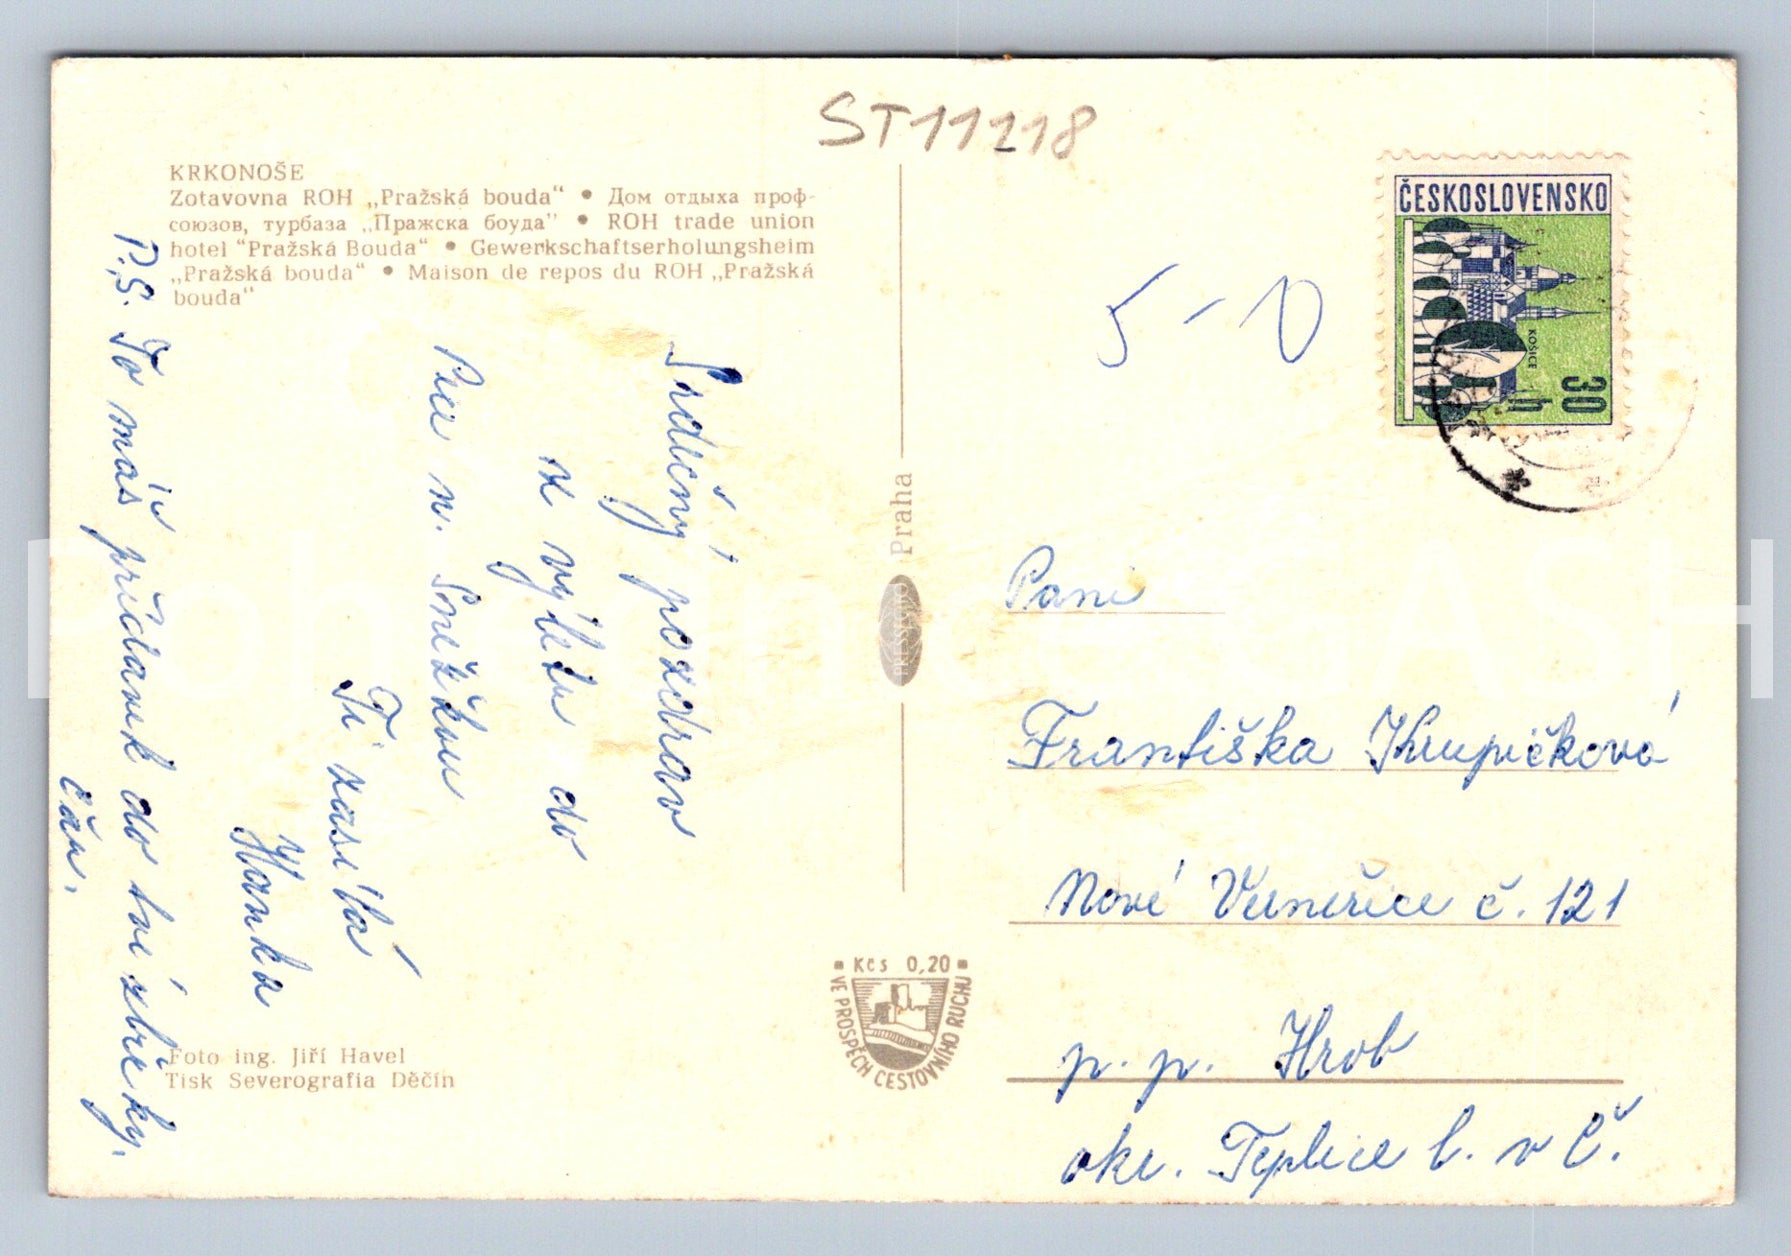 ST11218
KRKONOŠE
Zotavovna ROH „Pražská bouda“ • Дом отдыха проф-
союзов, турбаза „Пражска боуда” • ROH trade union
hotel “Pražská Bouda“ • Gewerkschaftserholungsheim
„Pražská bouda“ • Maison de repos du ROH „Pražská
bouda“
Srdečný pozdrav
z výletu do
Pece n. Sněžkou
Ti zasílá
Hanka
P.S. To máš přídavek do tvé sbírky.
čau.
Foto ing. Jiří Havel
Tisk Severografia Děčín
Praha
PRESSFOTO
Kčs 0,20
VE PROSPĚCH CESTOVNÍHO RUCHU
5-0
ČESKOSLOVENSKO
KOŠICE
30 h
Paní
Františka Krupičková
Nové Verneřice č. 121
p. p. Hrob
okr. Teplice l. v Č.